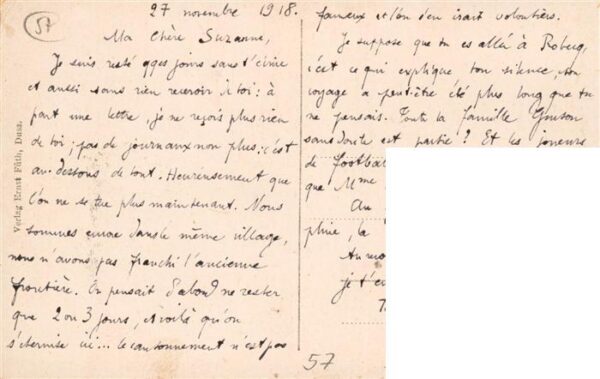 57
27 novembre 1918.
Ma Chère Suzanne,
Je suis resté qques jours sans t'écrire
et aussi sans rien recevoir de toi : à
part une lettre, je ne reçois plus rien
de toi ; pas de journaux non plus : c'est
au-dessous de tout. Heureusement que
l'on ne se tue plus maintenant. Nous
sommes encore dans le même village,
nous n'avons pas franchi l'ancienne
frontière. On pensait d'abord ne rester
que 2 ou 3 jours, et voilà qu'on
s'éternise ici... le cantonnement n'est pas
fameux et l'on s'en irait volontiers.
Je suppose que tu es allé à
c'est ce qui explique ton silence, ton
voyage a peut-être été plus long que tu
ne pensais. Toute la famille
sans doute est partie ? Et les joueurs
de football
que Mme
Au
pline, la
Au
je t'
57
Verlag Ernst Füth, Duss.